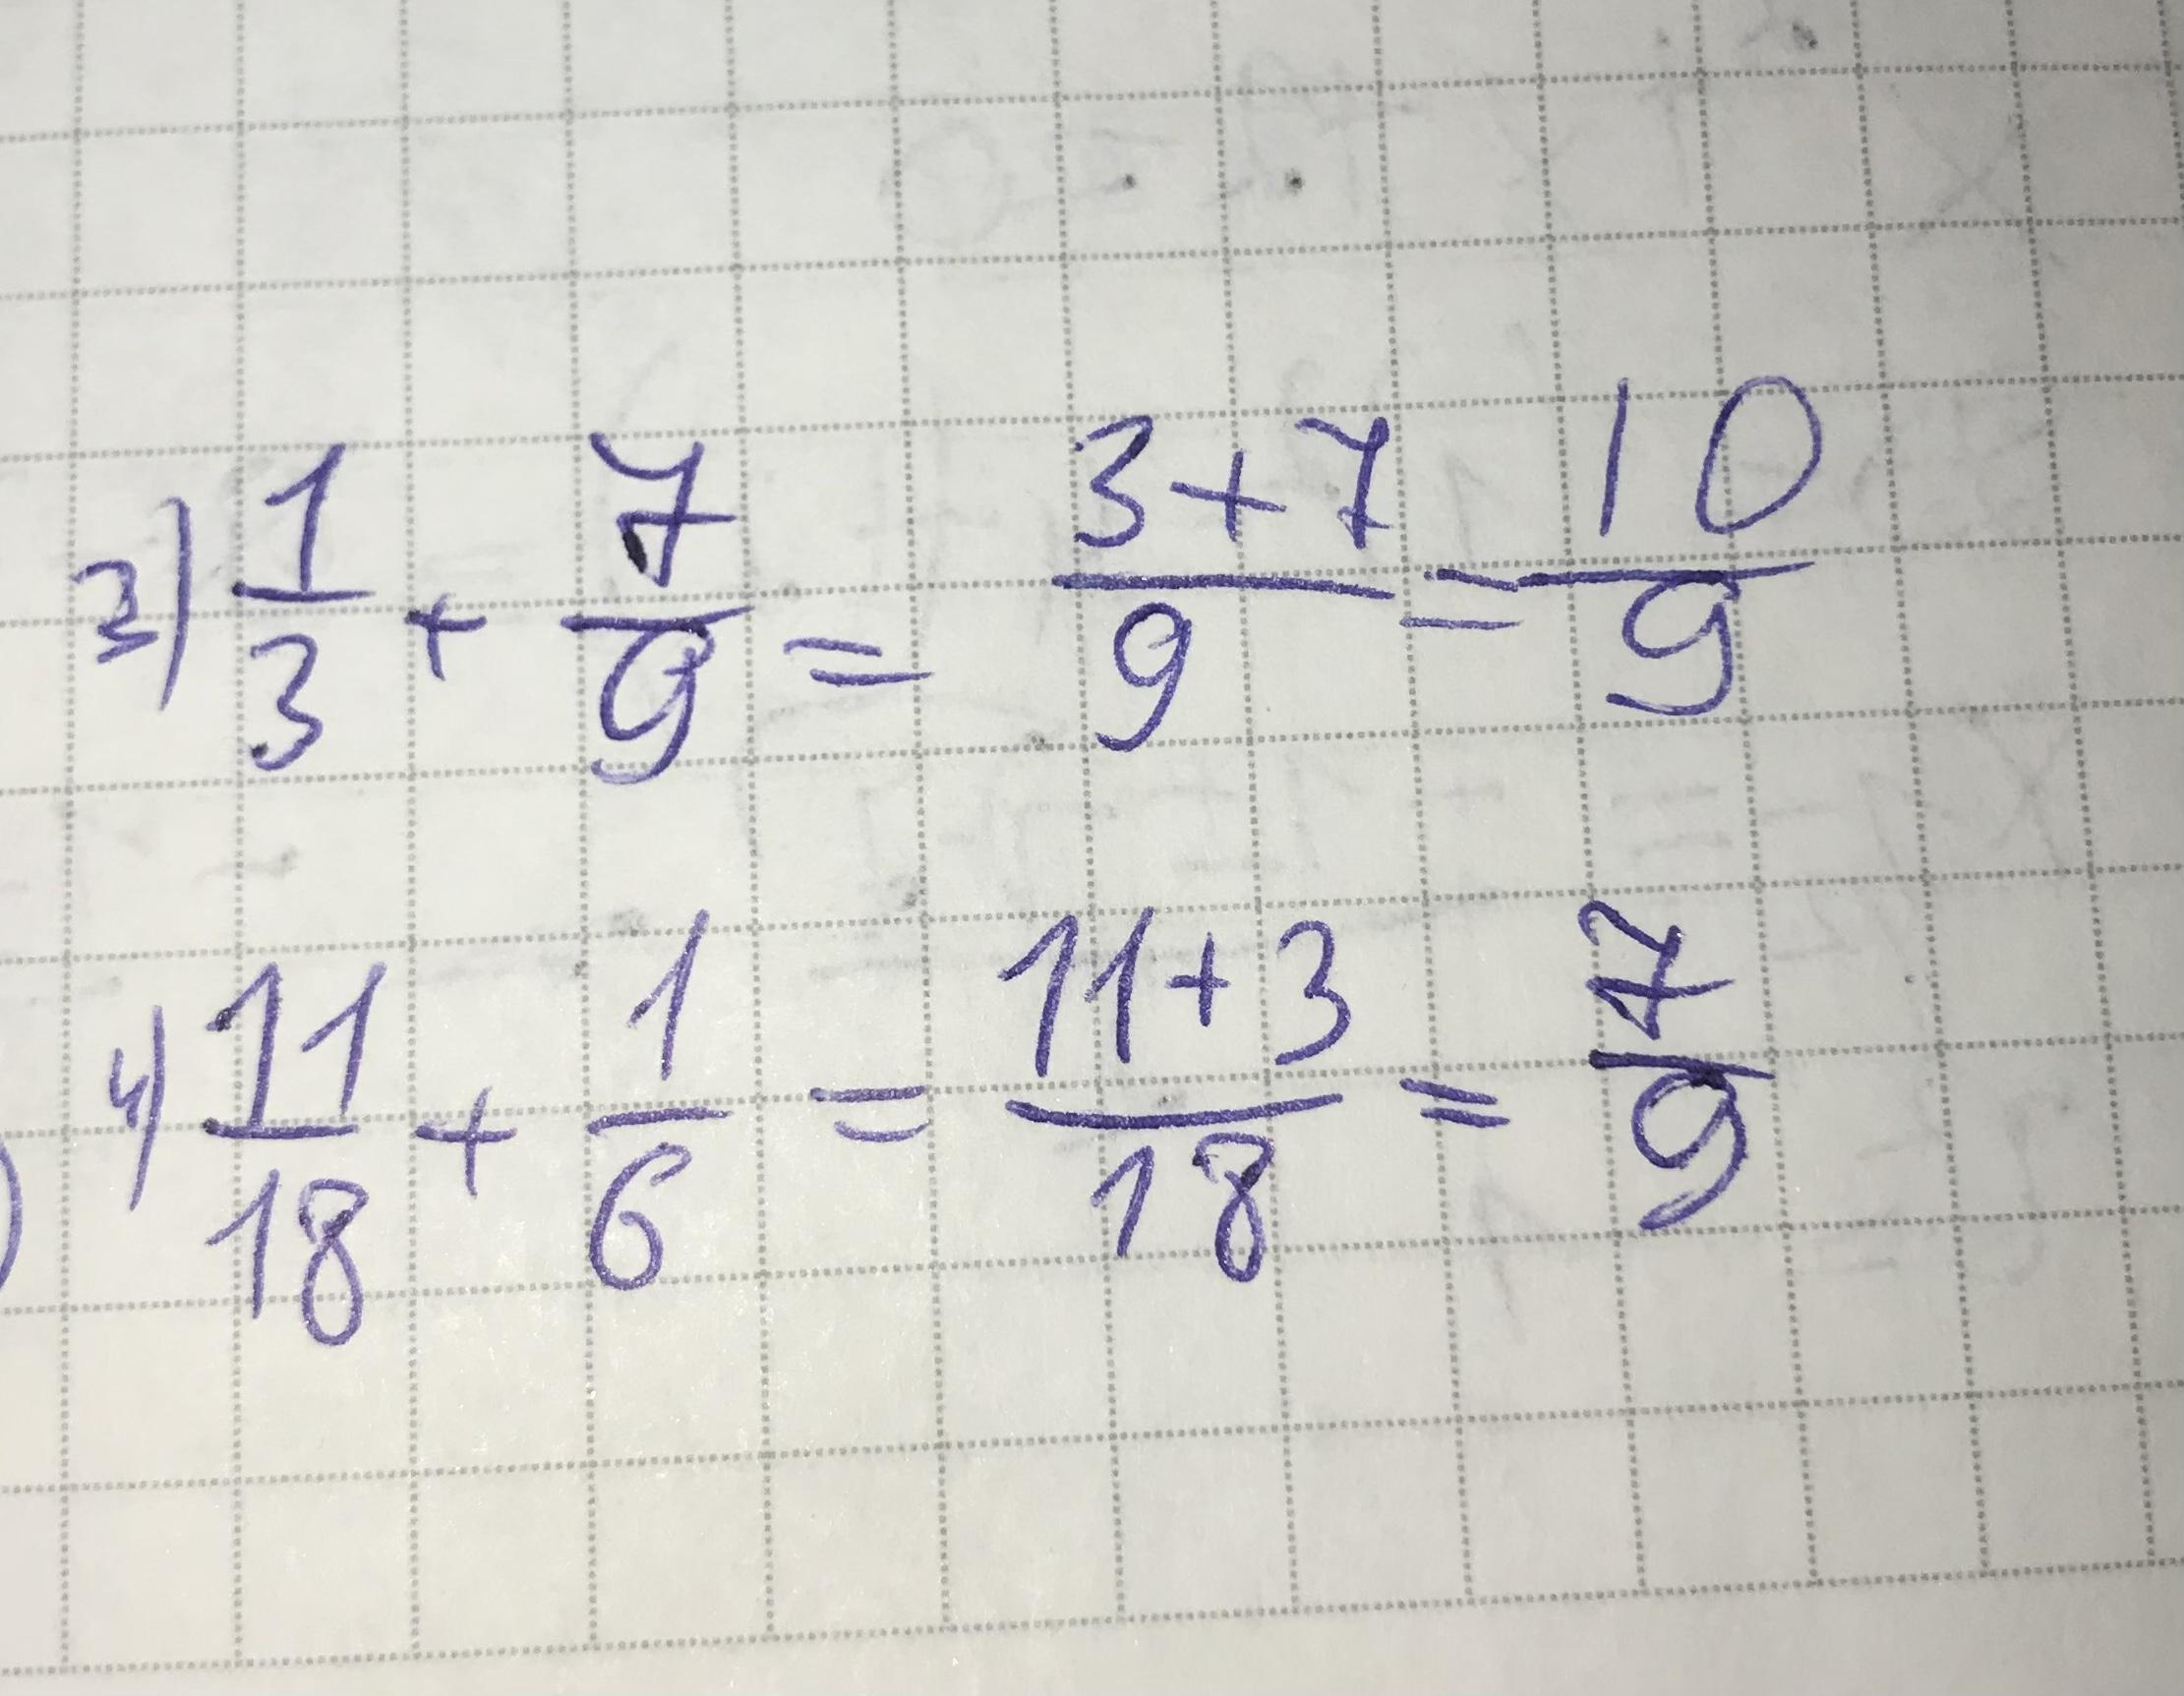 3) 1/3 + 7/9 = (3+7)/9 = 10/9
4) 11/18 + 1/6 = (11+3)/18 = 7/9